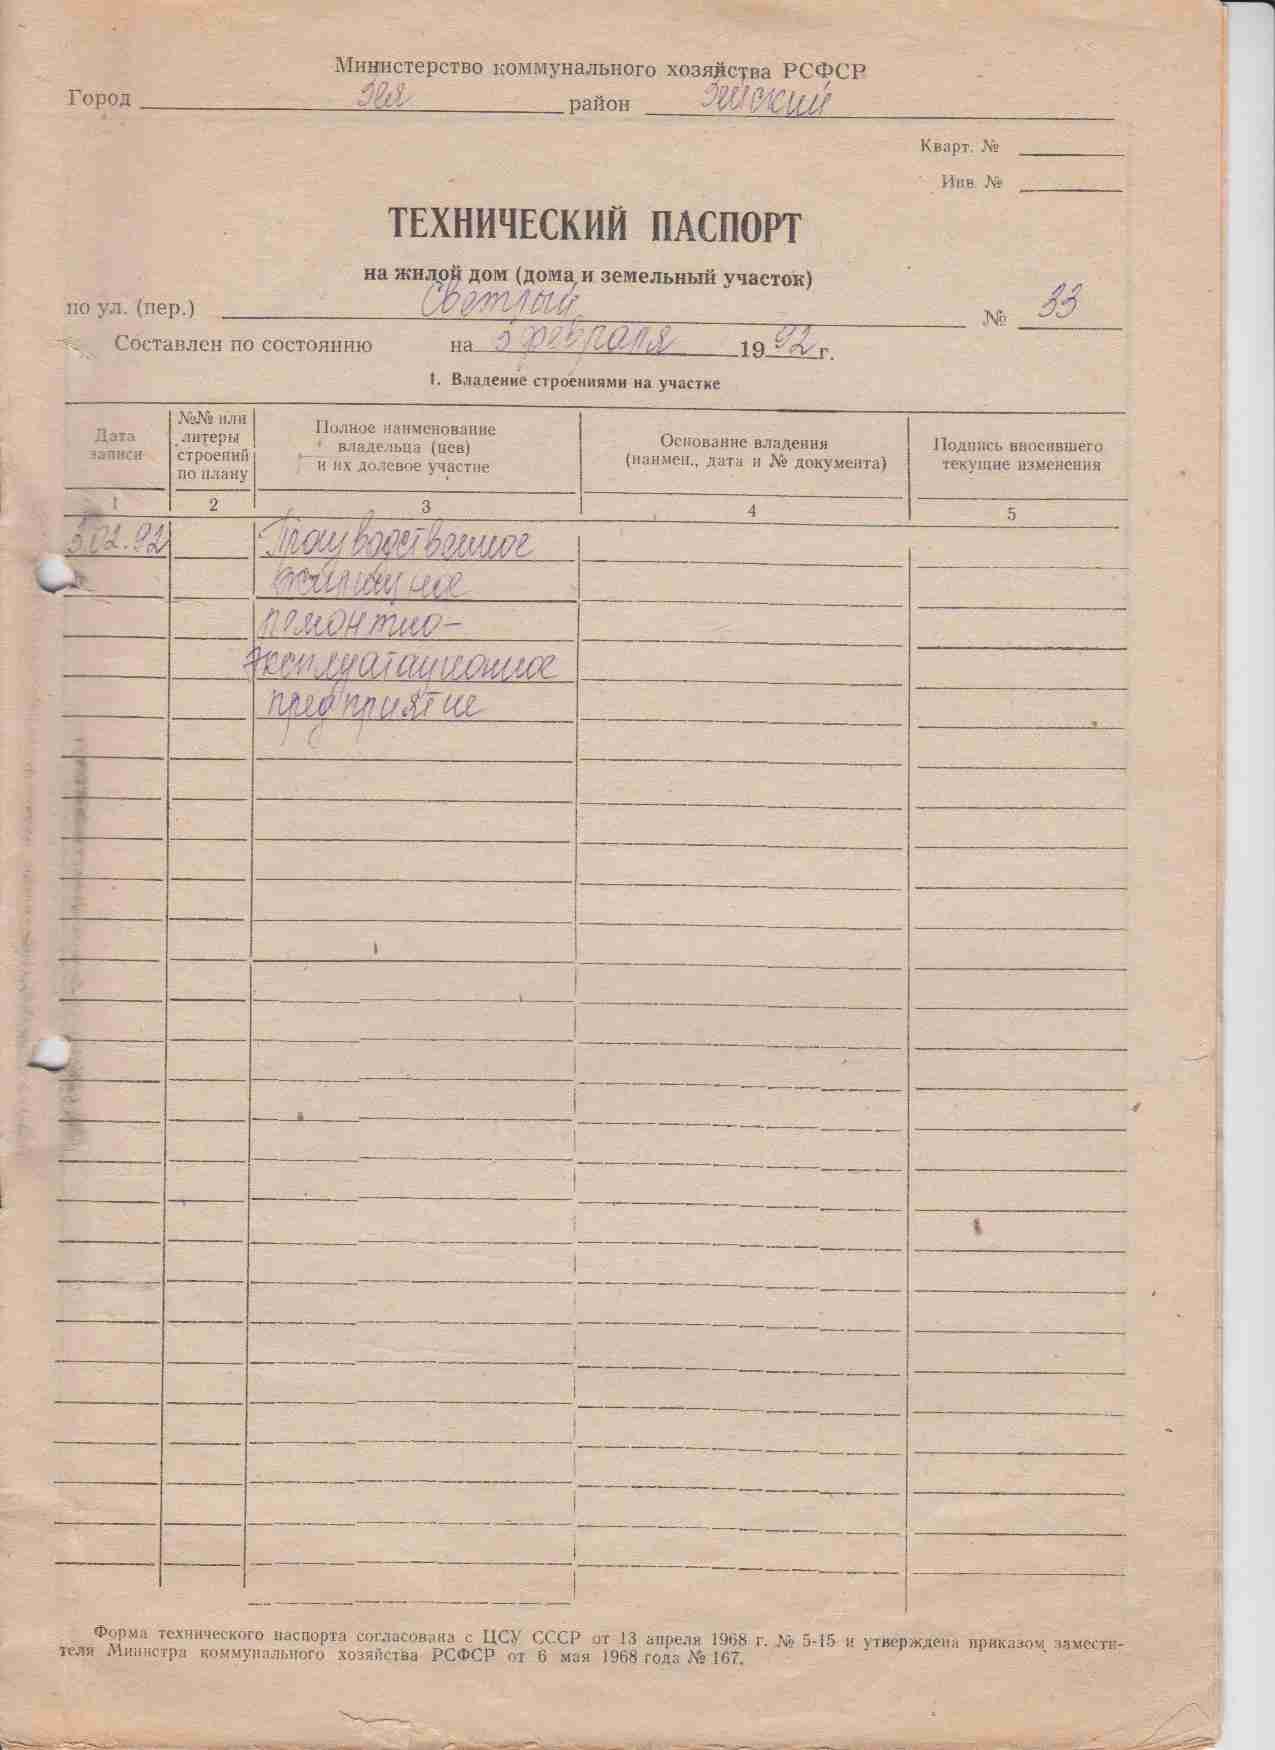 Министерство коммунального хозяйства РСФСР
Город Зея район Зейский
Кварт. №
Инв. №
ТЕХНИЧЕСКИЙ ПАСПОРТ
на жилой дом (дома и земельный участок)
по ул. (пер.) Светлый № 33
Составлен по состоянию на 5 февраля 1992 г.
1. Владение строениями на участке
Дата записи
№№ или литеры строений по плану
Полное наименование владельца (цев) и их долевое участие
Основание владения (наимен., дата и № документа)
Подпись вносившего текущие изменения
1 2 3 4 5
5.02.92 Производственное
жилищное
ремонтно-
эксплуатационное
предприятие
Форма технического паспорта согласована с ЦСУ СССР от 13 апреля 1968 г. № 5-15 и утверждена приказом замести-
теля Министра коммунального хозяйства РСФСР от 6 мая 1968 года № 167.